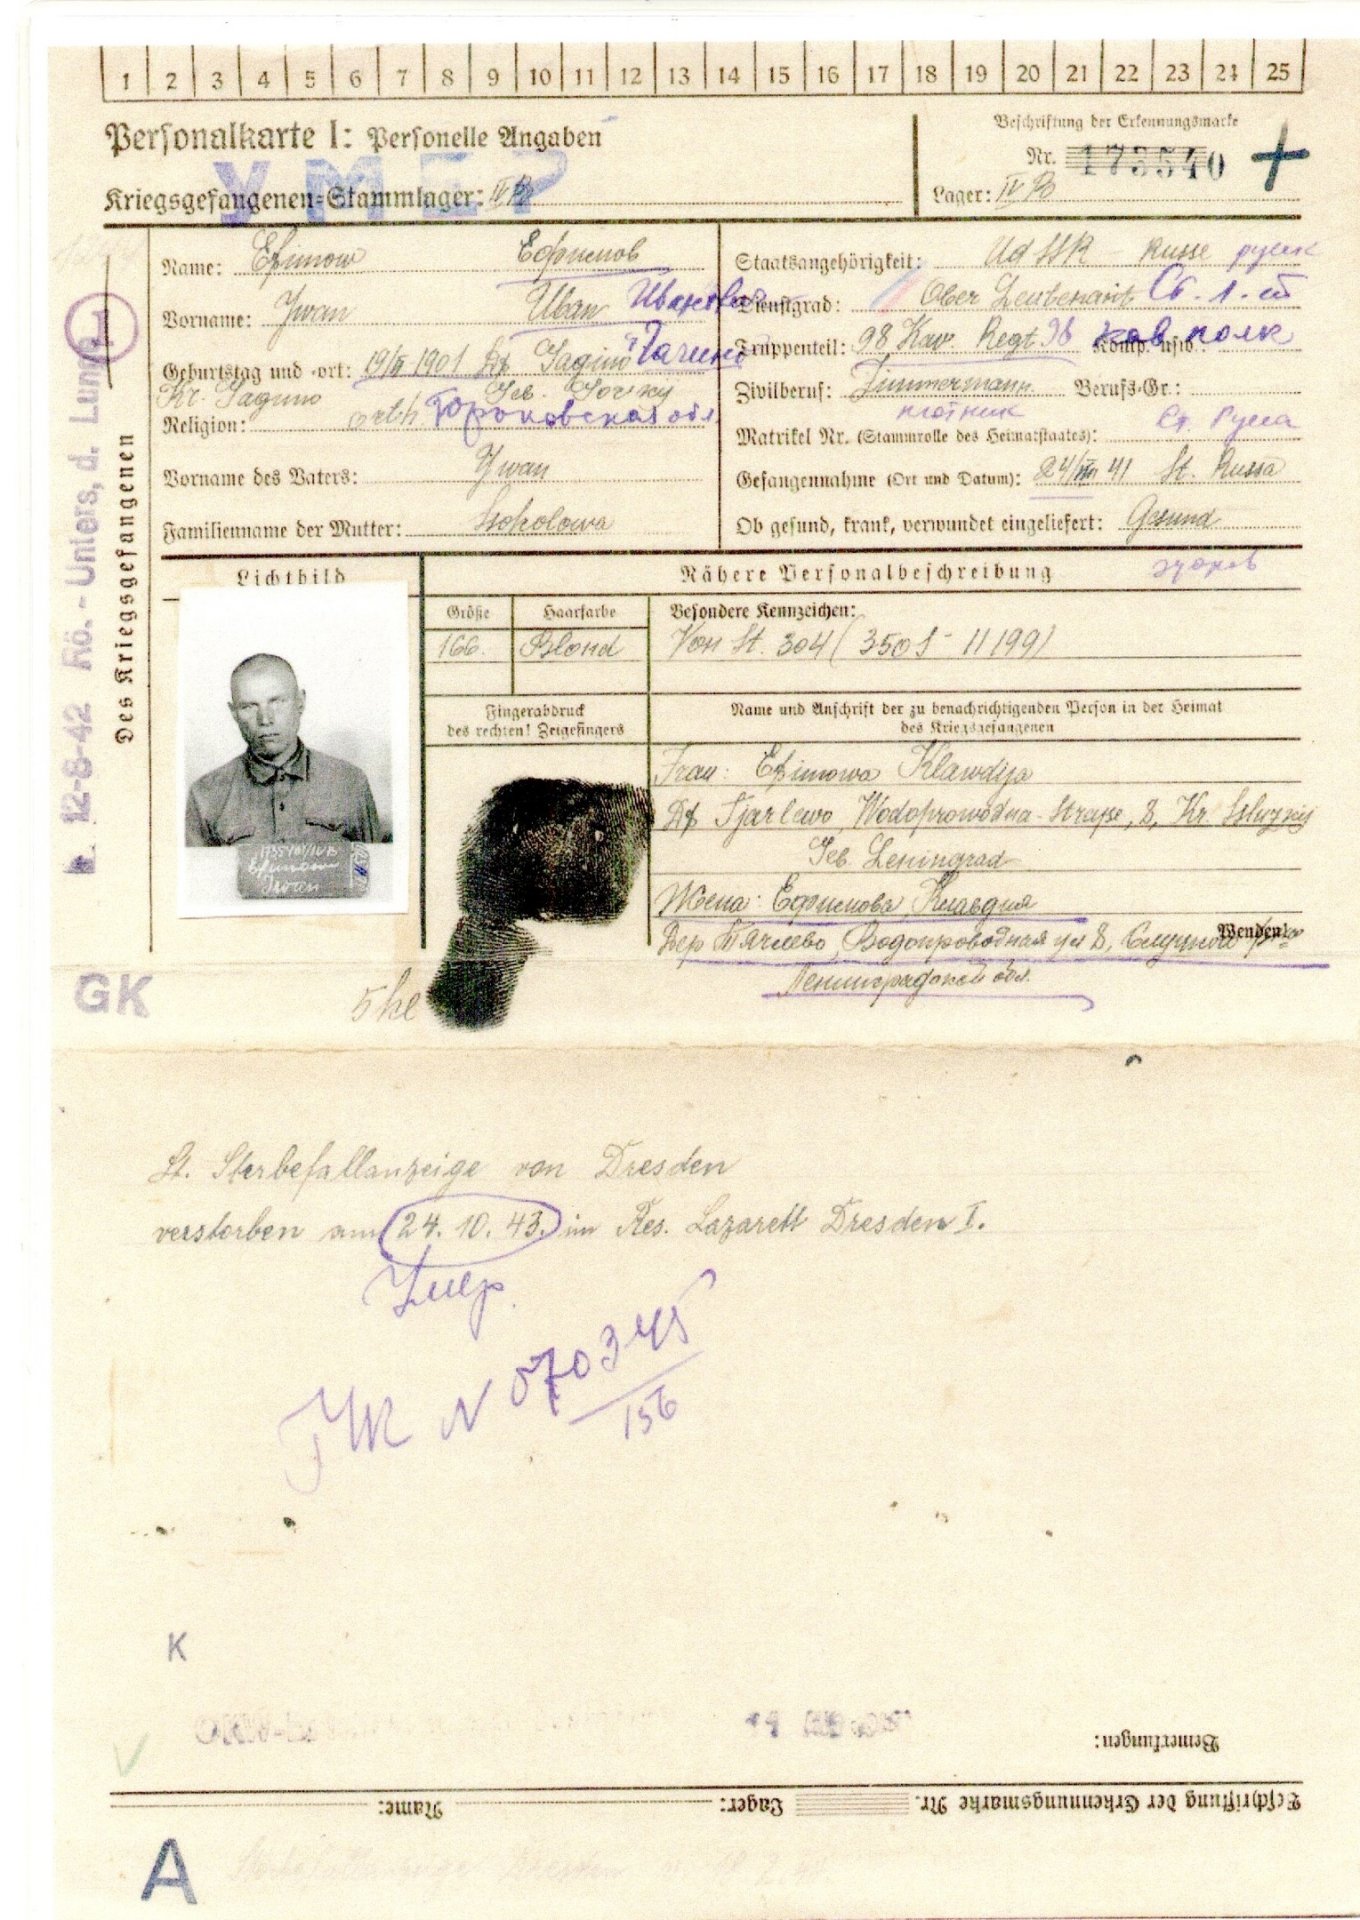 1 2 3 4 5 6 7 8 9 10 11 12 13 14 15 16 17 18 19 20 21 22 23 24 25
Personalkarte I: Personelle Angaben
УМЕР
Kriegsgefangenen-Stammlager: IV B
Beschriftung der Erkennungsmarke
Nr. 173540
Lager: IV B
Des Kriegsgefangenen
12-8-42 Rö.-Unters, d. Lunge
Name: Efimow Ефимов
Vorname: Iwan Иван Иванович
Geburtstag und -ort: 1901 Df. Jagino
Kr. Jagino Geb. Gorky
Religion: orth. Горьковская обл
Vorname des Vaters: Iwan
Familienname der Mutter: Sokolowa
Staatsangehörigkeit: UdSSR Russe русск
Dienstgrad: Ober Leutenant Ст. л-т
Truppenteil: 98 Kav. Regt 98 Komp. usw.: кав полк
Zivilberuf: Zimmermann Berufs-Gr.:
плотник
Matrikel Nr. (Stammrolle des Heimatstaates): Ст. Русса
Gefangennahme (Ort und Datum): 41 St. Russa
Ob gesund, krank, verwundet eingeliefert: Gesund
здоров
Lichtbild
Nähere Personalbeschreibung
Größe Haarfarbe Besondere Kennzeichen:
166. Blond Von St. 304 (350 S - 11199)
Fingerabdruck
des rechten! Zeigefingers
Name und Anschrift der zu benachrichtigenden Person in der Heimat
des Kriegsgefangenen
Frau: Efimowa Klawdija
Df Tjarlewo, Wodoprowodna-Strasse, 8, Kr. Sluzkij
Geb. Leningrad
Жена: Ефимова Клавдия
Дер Тярлево, Водопроводная ул 8, Слуцкого р-на
Wenden!
Ленинградской обл.
GK
Lt. Sterbefallanzeige von Dresden
verstorben am 24. 10. 43. im Res. Lazarett Dresden I.
Умер.
N 070345
156
K
Bemerkungen:
Beschriftung der Erkennungsmarke Nr. Lager: Name:
A